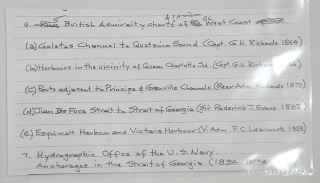 6. British Admiralty charts of BC West Coast
(a) Galetas Channel to Quatsino Sound (Capt. G.H. Richards 1864)
(b) Harbours in the vicinity of Queen Charlotte Sd. (Capt. G.H. Richards
(c) Ports adjusted to Principe & Grenville Channels (Rear Adm. Richards 1872)
(d) Juan De Fuca Strait to Strait of Georgia (Sir Frederick J. Evans 1882)
(e) Esquimalt Harbour and Victoria Harbour (V. Adm. F.C. Learmonth 1923)
7. Hydrographic Office of the U.S. Navy.
Anchorages in the Strait of Georgia (1894,